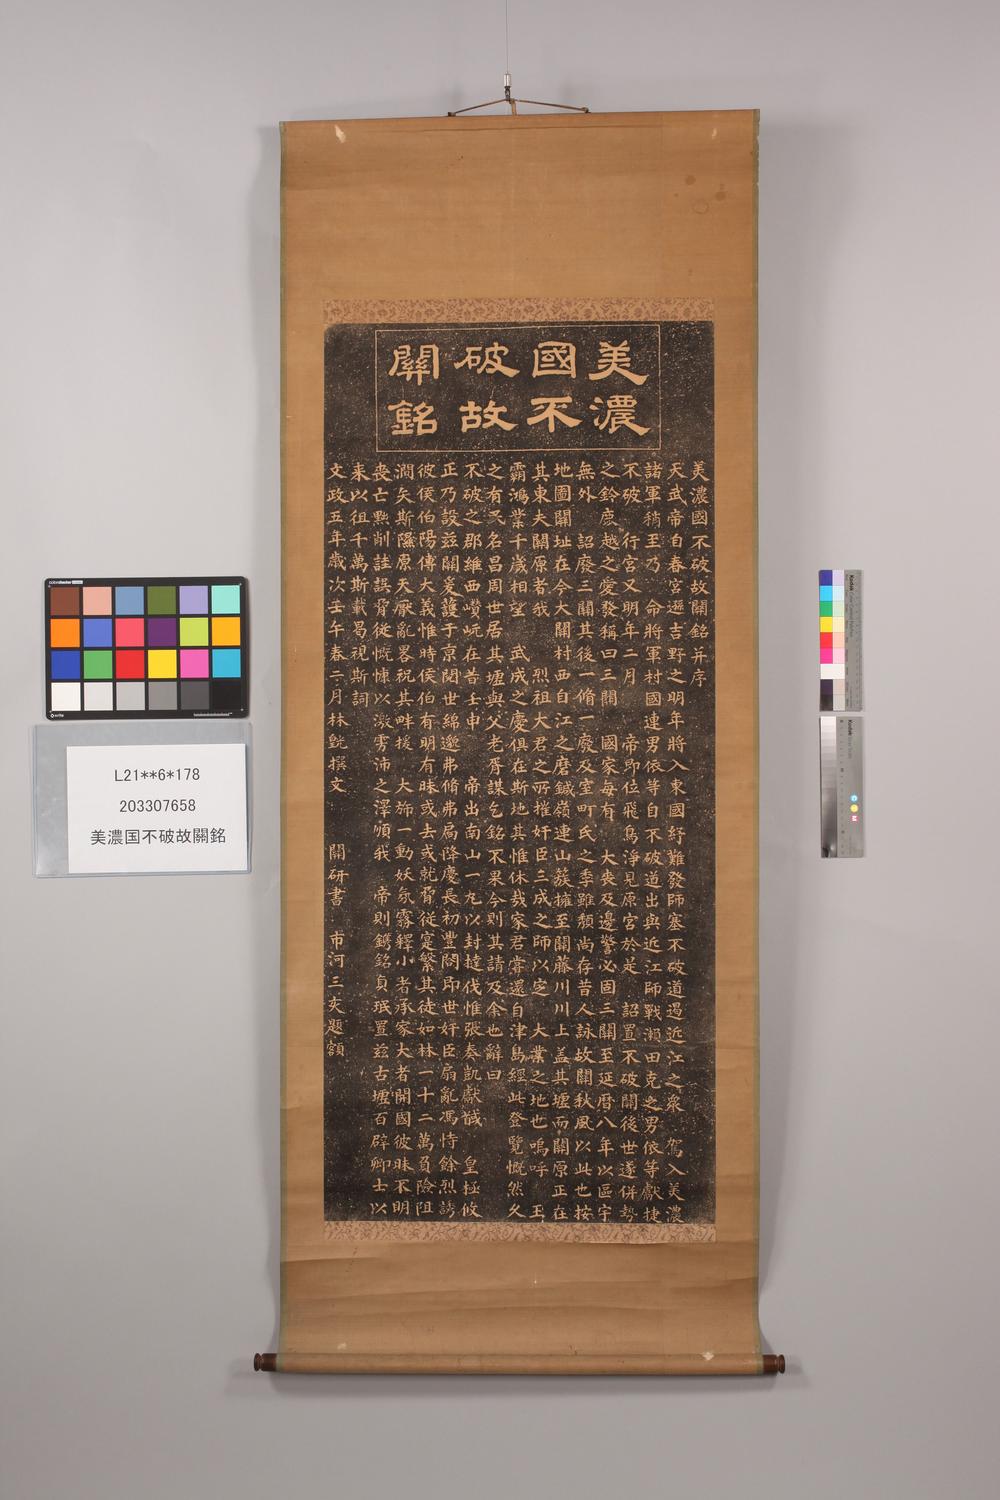 美濃
國不
破故
關銘
美濃國不破故關銘并序
天武帝自春宮遜吉野之明年將入東國紓難發師塞不破道過近江之衆 駕入美濃
諸軍稍至乃 命將軍村國連男依等自不破道出與近江師戰瀬田克之男依等獻捷
不破 行宮又明年二月 帝即位飛鳥淨見原宮於是 詔置不破關後世遂併勢
之鈴鹿越之愛發稱曰三關 國家每有 大喪及邊警必固三關至延暦八年以區宇
無外 詔廢三關其後一脩一廢及室町氏之季雖頽尚存昔人詠故關秋風以此也按
地圖關址在今大關村西自江之磨鍼嶺連山蔟擁至關藤川川上蓋其墟而關原正在
其東夫關原者我 烈祖大君之所摧奸臣三成之師以定 大業之地也嗚呼 王
霸鴻業千歳相望 武成之慶俱在斯地其惟休哉家君嘗還自津島經此登覽慨然久
之有兒名昌周世居其墟與父老胥謀乞銘不果今則其請及余也辭曰
不破之郡維西嶺岏在昔壬申 帝出南山一丸以封撻伐惟張奏凱獻馘 皇極攸
正乃設茲關爰護于京閲世綿邈弗脩弗扃降慶長初豐閤即世奸臣扇亂馮恃餘烈誘
彼侯伯陽傳大義惟時侯伯有明有昧或去或就脅從寔繁其徒如林一十二萬負險阻
澗矣斯隰原天厭亂畧祝其畔援 大斾一動妖氛霧釋小者承家大者開國彼昧不明
喪亡黜削詿誤脅從慨悚以溵雱沛之澤頌我 帝則鐫銘貞珉置茲古墟百辟卿士以
來以徂千萬斯載曷視斯詞
文政五年歳次壬午春二月林皝撰文 關研書 市河三亥題額
L21**6*178
203307658
美濃国不破故關銘